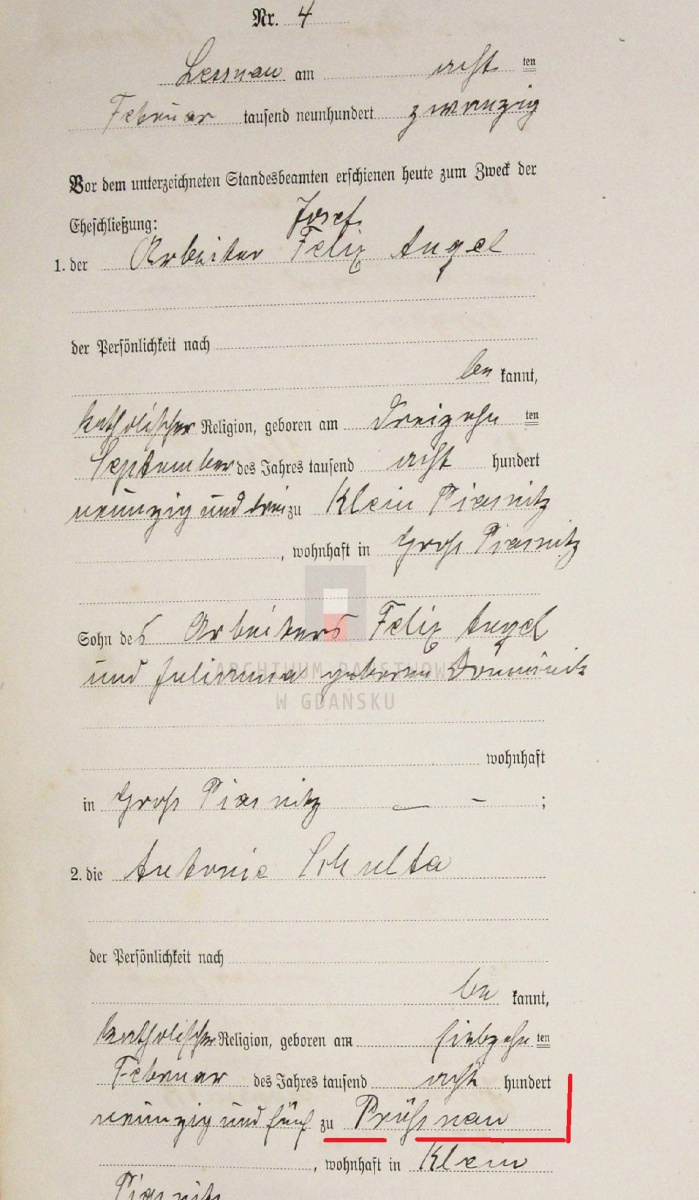 Nr. 4
Lessnau am acht ten
Februar tausend neunhundert zwanzig
Vor dem unterzeichneten Standesbeamten erschienen heute zum Zweck der
Josef
Eheschließung:
1. der Arbeiter Felix Angel
der Persönlichkeit nach
be kannt,
katholischer Religion, geboren am dreizehn ten
September des Jahres tausend acht hundert
neunzig und drei zu Klein Piasnitz
, wohnhaft in Groß Piasnitz
Sohn des Arbeiters Felix Angel
und Julianna geborene
ARCHIWUM PAŃSTWOWE
W GDAŃSKU
wohnhaft
in Groß Piasnitz — - ;
2. die Antonie Schulta
der Persönlichkeit nach
be kannt,
katholischer Religion, geboren am siebzehn ten
Februar des Jahres tausend acht hundert
neunzig und fünf zu Prüßnau
, wohnhaft in Klein
Piasnitz